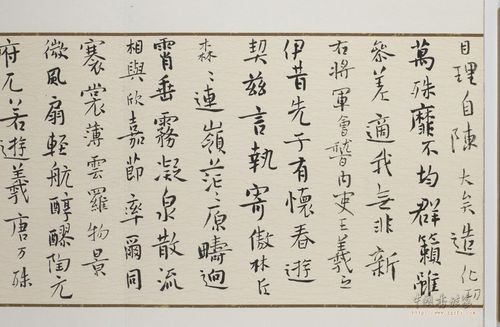 目理自陳大矣造化功
萬殊靡不均群籟雖
參差適我無非新
右將軍會稽內史王羲之
伊昔先子有懷春遊
契茲言執寄傲林丘
森〻連嶺茫〻原疇迥
霄垂霧凝泉散流
相與欣嘉節率爾同
褰裳薄雲羅物景
微風扇輕航醇醪陶元
府兀若遊羲唐万殊